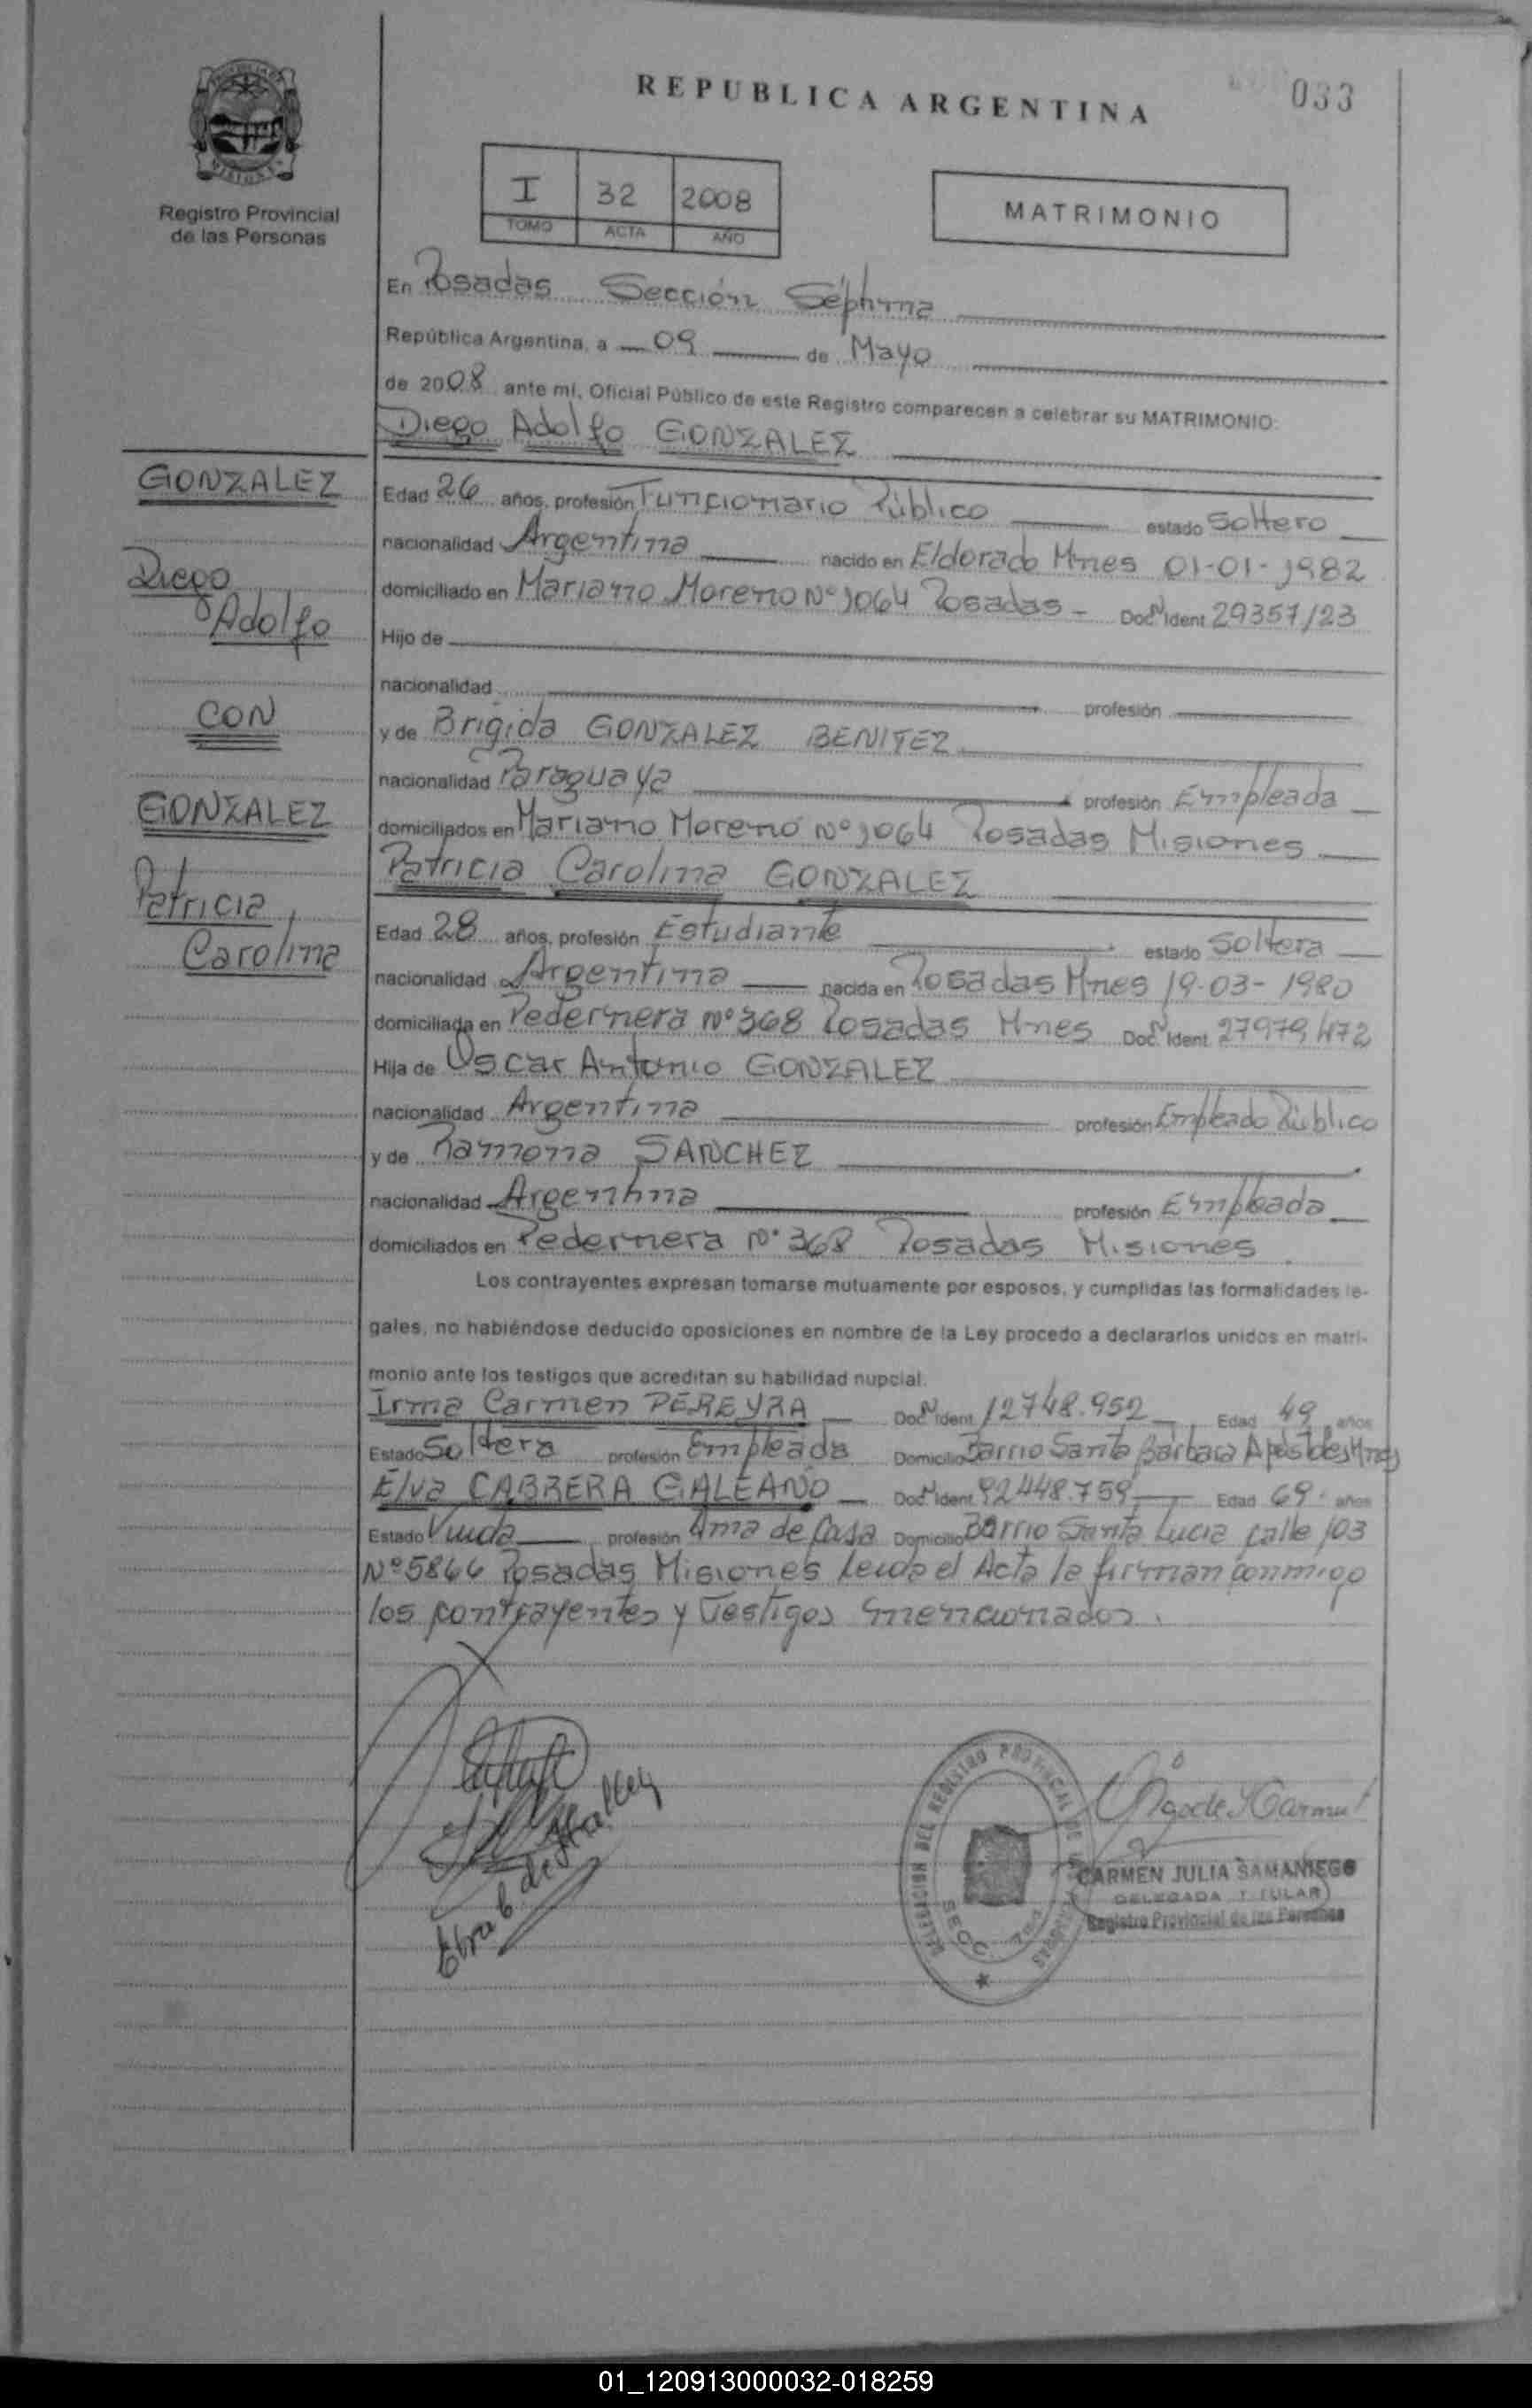 REPUBLICA ARGENTINA
033
Registro Provincial
de las Personas
I 32 2008
TOMO ACTA AÑO
MATRIMONIO
En Posadas Sección Séptima
República Argentina, a 09 de Mayo
de 2008 ante mí, Oficial Público de este Registro comparecen a celebrar su MATRIMONIO:
Diego Adolfo GONZALEZ
GONZALEZ
Diego
Adolfo
CON
GONZALEZ
Patricia
Carolina
Edad 26 años, profesión Funcionario Público estado Soltero
nacionalidad Argentina nacido en Eldorado Mnes 01-01-1982
domiciliado en Mariano Moreno Nº 1064 Posadas - Doc. Nº Ident 29357123
Hijo de
nacionalidad profesión
y de Brígida GONZALEZ BENITEZ
nacionalidad Paraguaya profesión Empleada
domiciliados en Mariano Moreno Nº 1064 Posadas Misiones
Patricia Carolina GONZALEZ
Edad 28 años, profesión Estudiante estado Soltera
nacionalidad Argentina nacida en Posadas Mnes 19-03-1980
domiciliada en Pedernera Nº 368 Posadas Mnes Doc. Nº Ident 27979472
Hija de Oscar Antonio GONZALEZ
nacionalidad Argentina profesión Empleado Público
y de Ramona SANCHEZ
nacionalidad Argentina profesión Empleada
domiciliados en Pedernera Nº 368 Posadas Misiones
Los contrayentes expresan tomarse mutuamente por esposos, y cumplidas las formalidades le-
gales, no habiéndose deducido oposiciones en nombre de la Ley procedo a declararlos unidos en matri-
monio ante los testigos que acreditan su habilidad nupcial.
Irma Carmen PEREYRA Doc. Nº Ident 12748.952 Edad 49 años
Estado Soltera profesión Empleada Domicilio Barrio Santa Bárbara Apóstoles Mnes
Elva CABRERA GALEANO Doc. Nº Ident 92448.759 Edad 69 años
Estado Viuda profesión Ama de Casa Domicilio Barrio Santa Lucia calle 103
Nº 5866 Posadas Misiones Leida el Acta la firman conmigo
los contrayentes y Testigos mencionados.
DELEGACION DEL REGISTRO PROVINCIAL DE LAS PERSONAS
SECC. 7ma
CARMEN JULIA SAMANIEGO
DELEGADA TITULAR
Registro Provincial de las Personas
01_120913000032-018259